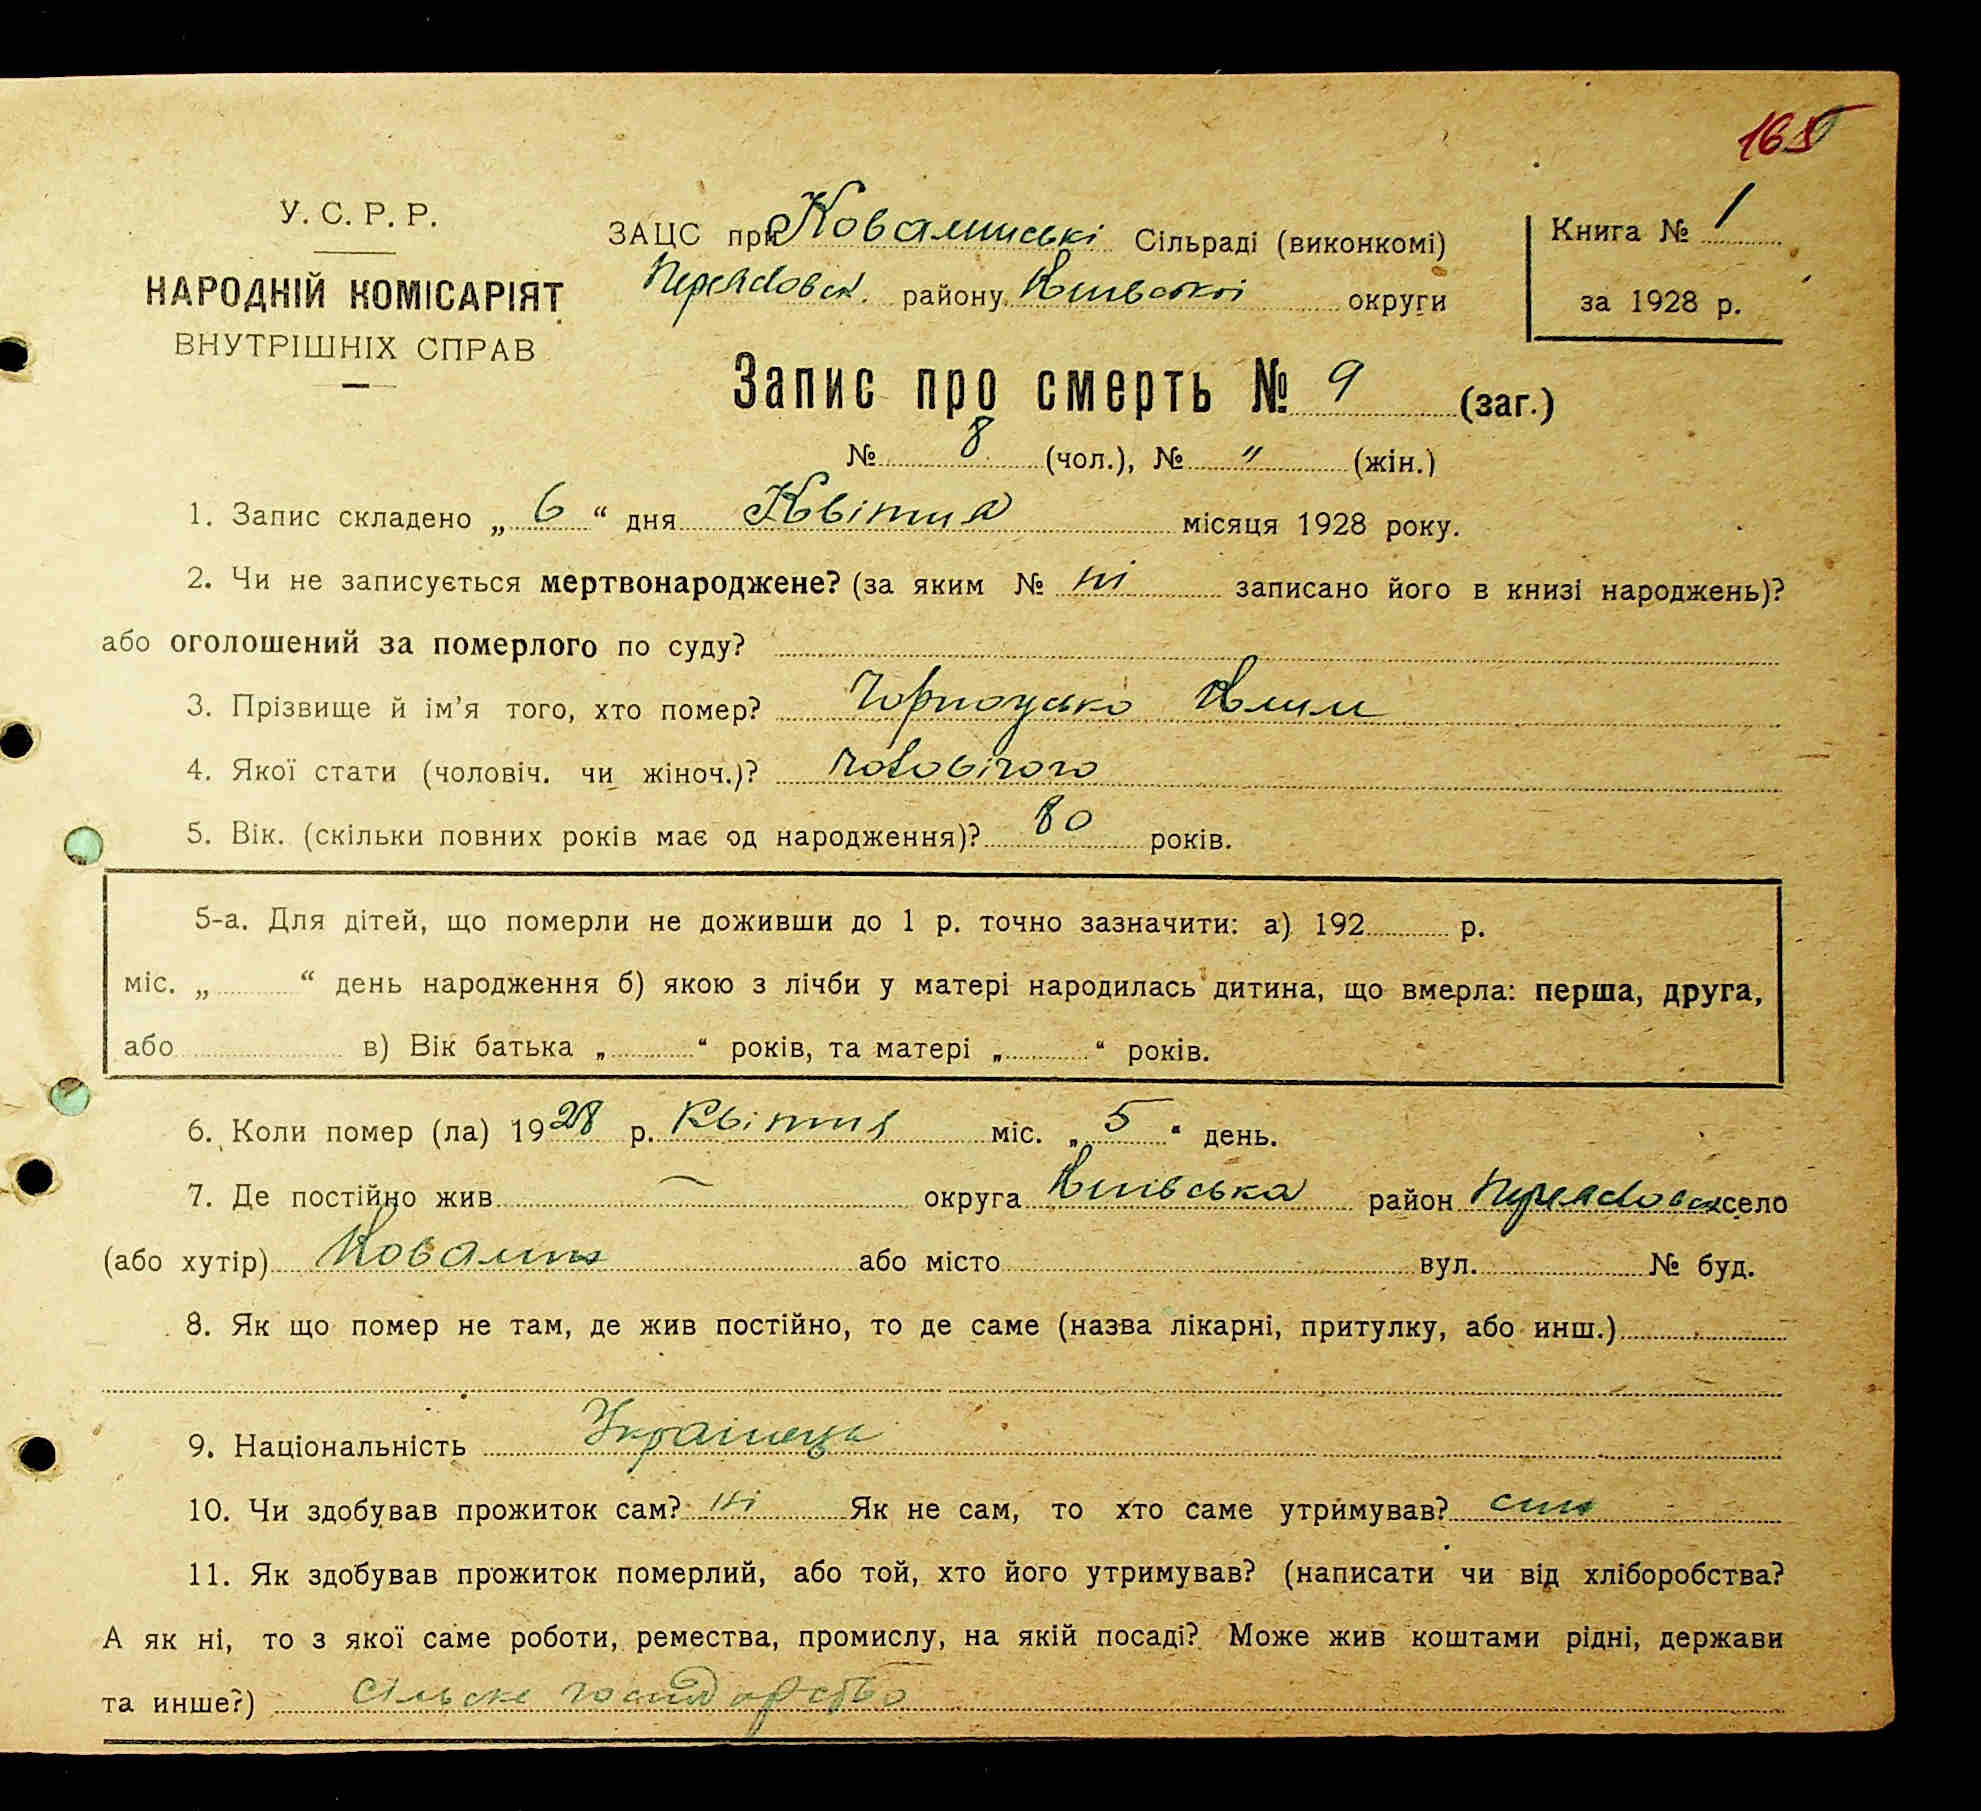 165
У. С. Р. Р.
НАРОДНІЙ КОМІСАРІЯТ
ВНУТРІШНІХ СПРАВ
ЗАЦС при Ковалинські Сільраді (виконкомі)
Переясловск. району Київської округи
Книга № 1
за 1928 р.
Запис про смерть № 9 (заг.)
№ 8 (чол.), № " (жін.)
1. Запис складено „ 6 “ дня Квітня місяця 1928 року.
2. Чи не записується мертвонароджене? (за яким № ні записано його в книзі народжень)?
або оголошений за померлого по суду?
3. Прізвище й ім’я того, хто помер? Чорноусько Клим
4. Якої стати (чоловіч. чи жіноч.)? Чоловічого
5. Вік. (скільки повних років має од народження)? 80 років.
5-а. Для дітей, що померли не доживши до 1 р. точно зазначити: а) 192 р.
міс. „ “ день народження б) якою з лічби у матері народилась дитина, що вмерла: перша, друга,
або в) Вік батька „ “ років, та матері „ “ років.
6. Коли помер (ла) 1928 р. Квітня міс. „ 5 “ день.
7. Де постійно жив — округа Київська район Переясловск село
(або хутір) Ковалин або місто вул. № буд.
8. Як що помер не там, де жив постійно, то де саме (назва лікарні, притулку, або инш.)
9. Національність Українець
10. Чи здобував прожиток сам? ні Як не сам, то хто саме утримував? син
11. Як здобував прожиток померлий, або той, хто його утримував? (написати чи від хліборобства?
А як ні, то з якої саме роботи, ремества, промислу, на якій посаді? Може жив коштами рідні, держави
та инше?) Сільске господарство